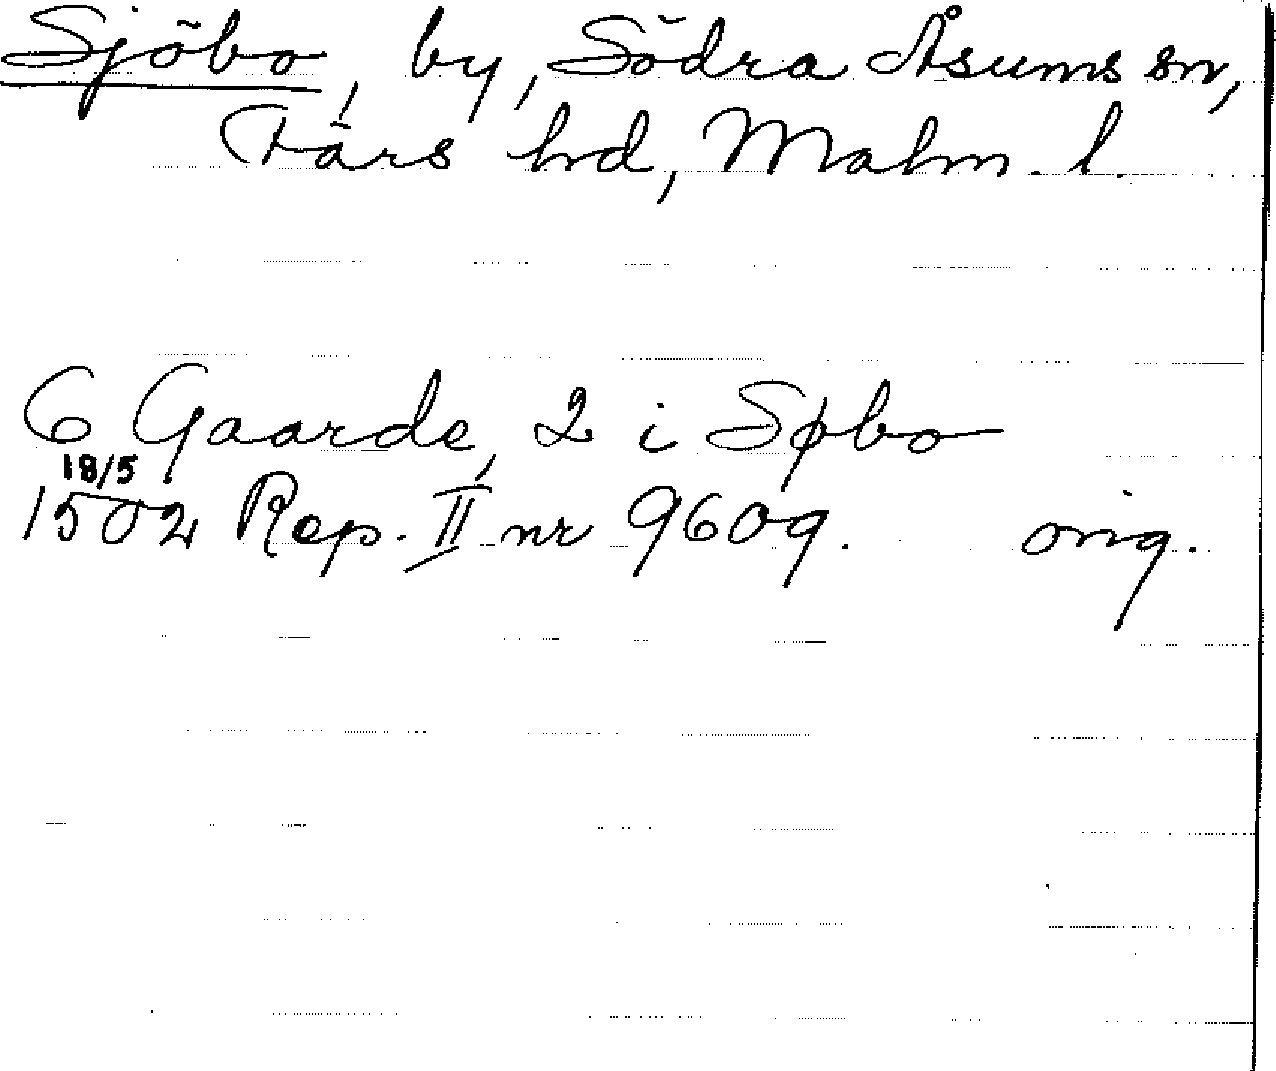 Sjöbo, by, Södra Åsums sn,
Färs hd, Malm. l.
6 Gaarde, 2 i Søbo
18/5
1502 Rep. II nr 9609. orig.